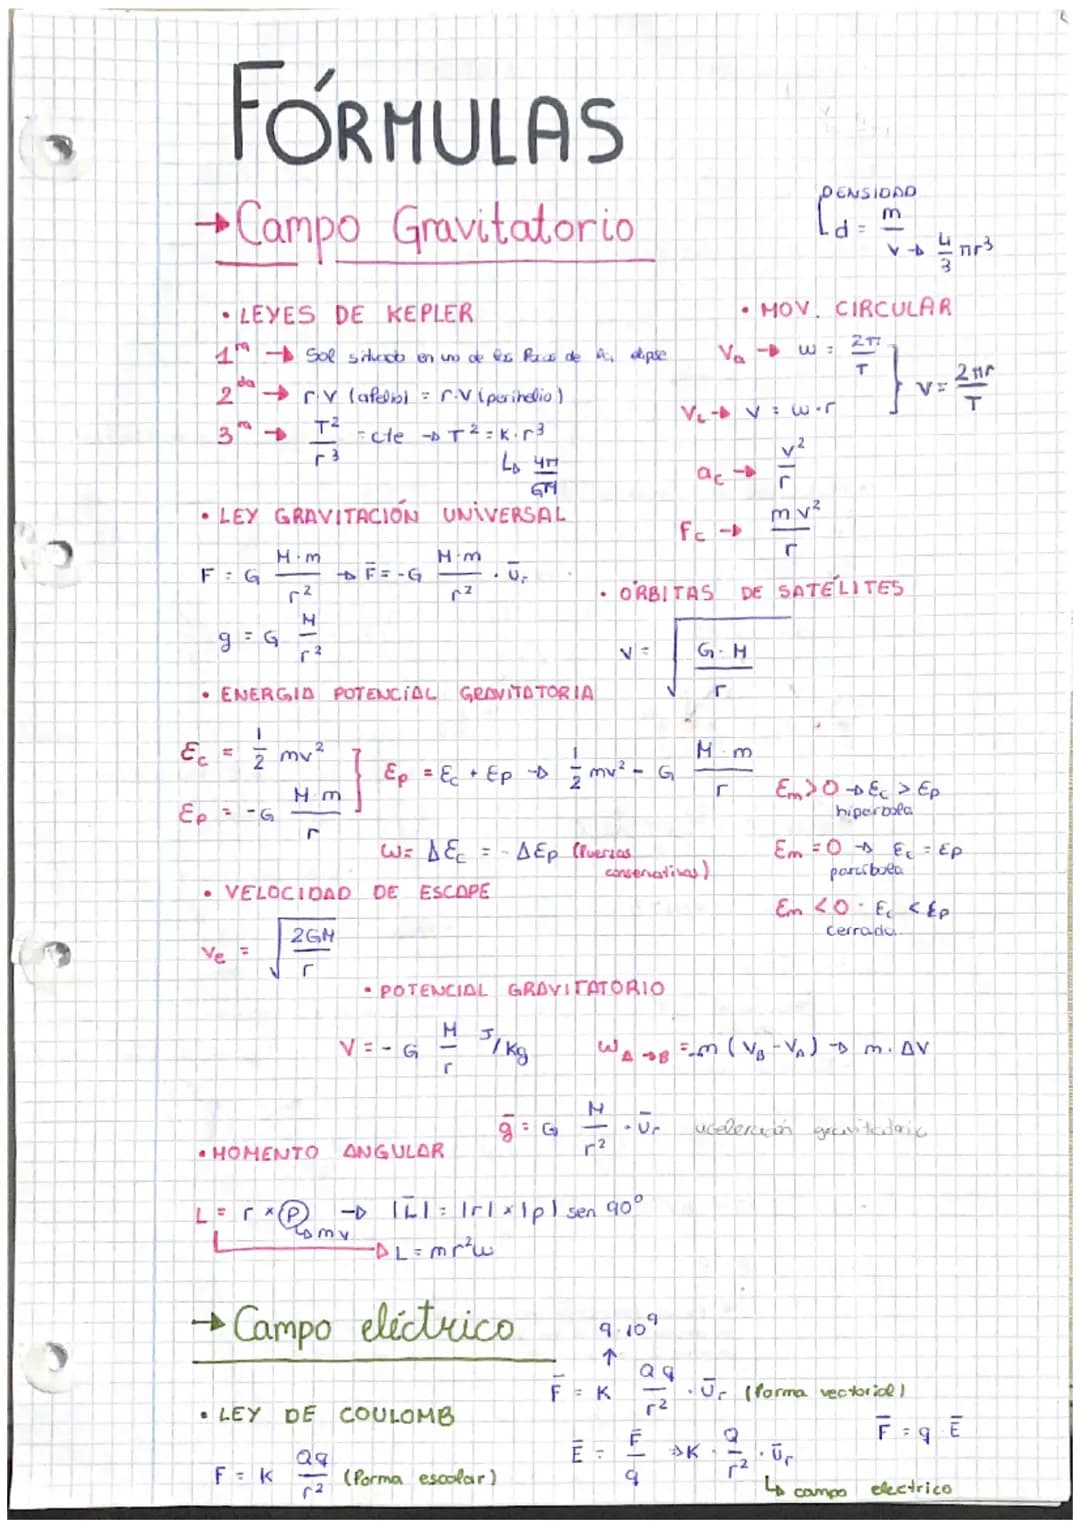 FÓRMULAS
→ Campo Gravitatorio
DENSIDAD
d = m / v → 4/3 πr³
• LEYES DE KEPLER
1ra → Sol situado en uno de los focos de elipse
2da → r·v (afelio) = r·v (perihelio)
3ra → T²/r³ = cte → T² = K·r³
↳ 4π/GM
• MOV. CIRCULAR
Va → w = 2π/T
VL → v = w·r
v = 2πr/T
ac → v²/r
Fc → mv²/r
• LEY GRAVITACIÓN UNIVERSAL
F = G M·m/r² → F̄ = -G M·m/r² · ūr
g = G M/r²
• ÓRBITAS DE SATÉLITES
v = √(G·M/r)
• ENERGIA POTENCIAL GRAVITATORIA
Ec = 1/2 mv²
Ep = -G M·m/r
Ep = Ec + Ep → 1/2 mv² - G M·m/r
W = ΔEc = -ΔEp (fuerzas conservativas)
Em > 0 → Ec > Ep
hiperbola
Em = 0 → Ec = Ep
parábola
Em < 0 · Ec < Ep
cerrada
• VELOCIDAD DE ESCAPE
Ve = √(2GM/r)
• POTENCIAL GRAVITATORIO
V = -G M/r J/Kg
WA→B = -m (VB - VA) → m·ΔV
ḡ = G M/r² · ūr aceleración gravitatoria
• MOMENTO ANGULAR
L = r × p → |L̄| = |r| × |p| sen 90°
↳ mv
→ L = mr²w
→ Campo eléctrico
9·10⁹
↑
F̄ = K Qq/r² · ūr (forma vectorial)
• LEY DE COULOMB
F = K Qq/r² (forma escalar)
Ē = F̄/q ⇒ K · Q/r² · ūr
↳ campo electrico
F̄ = q·Ē